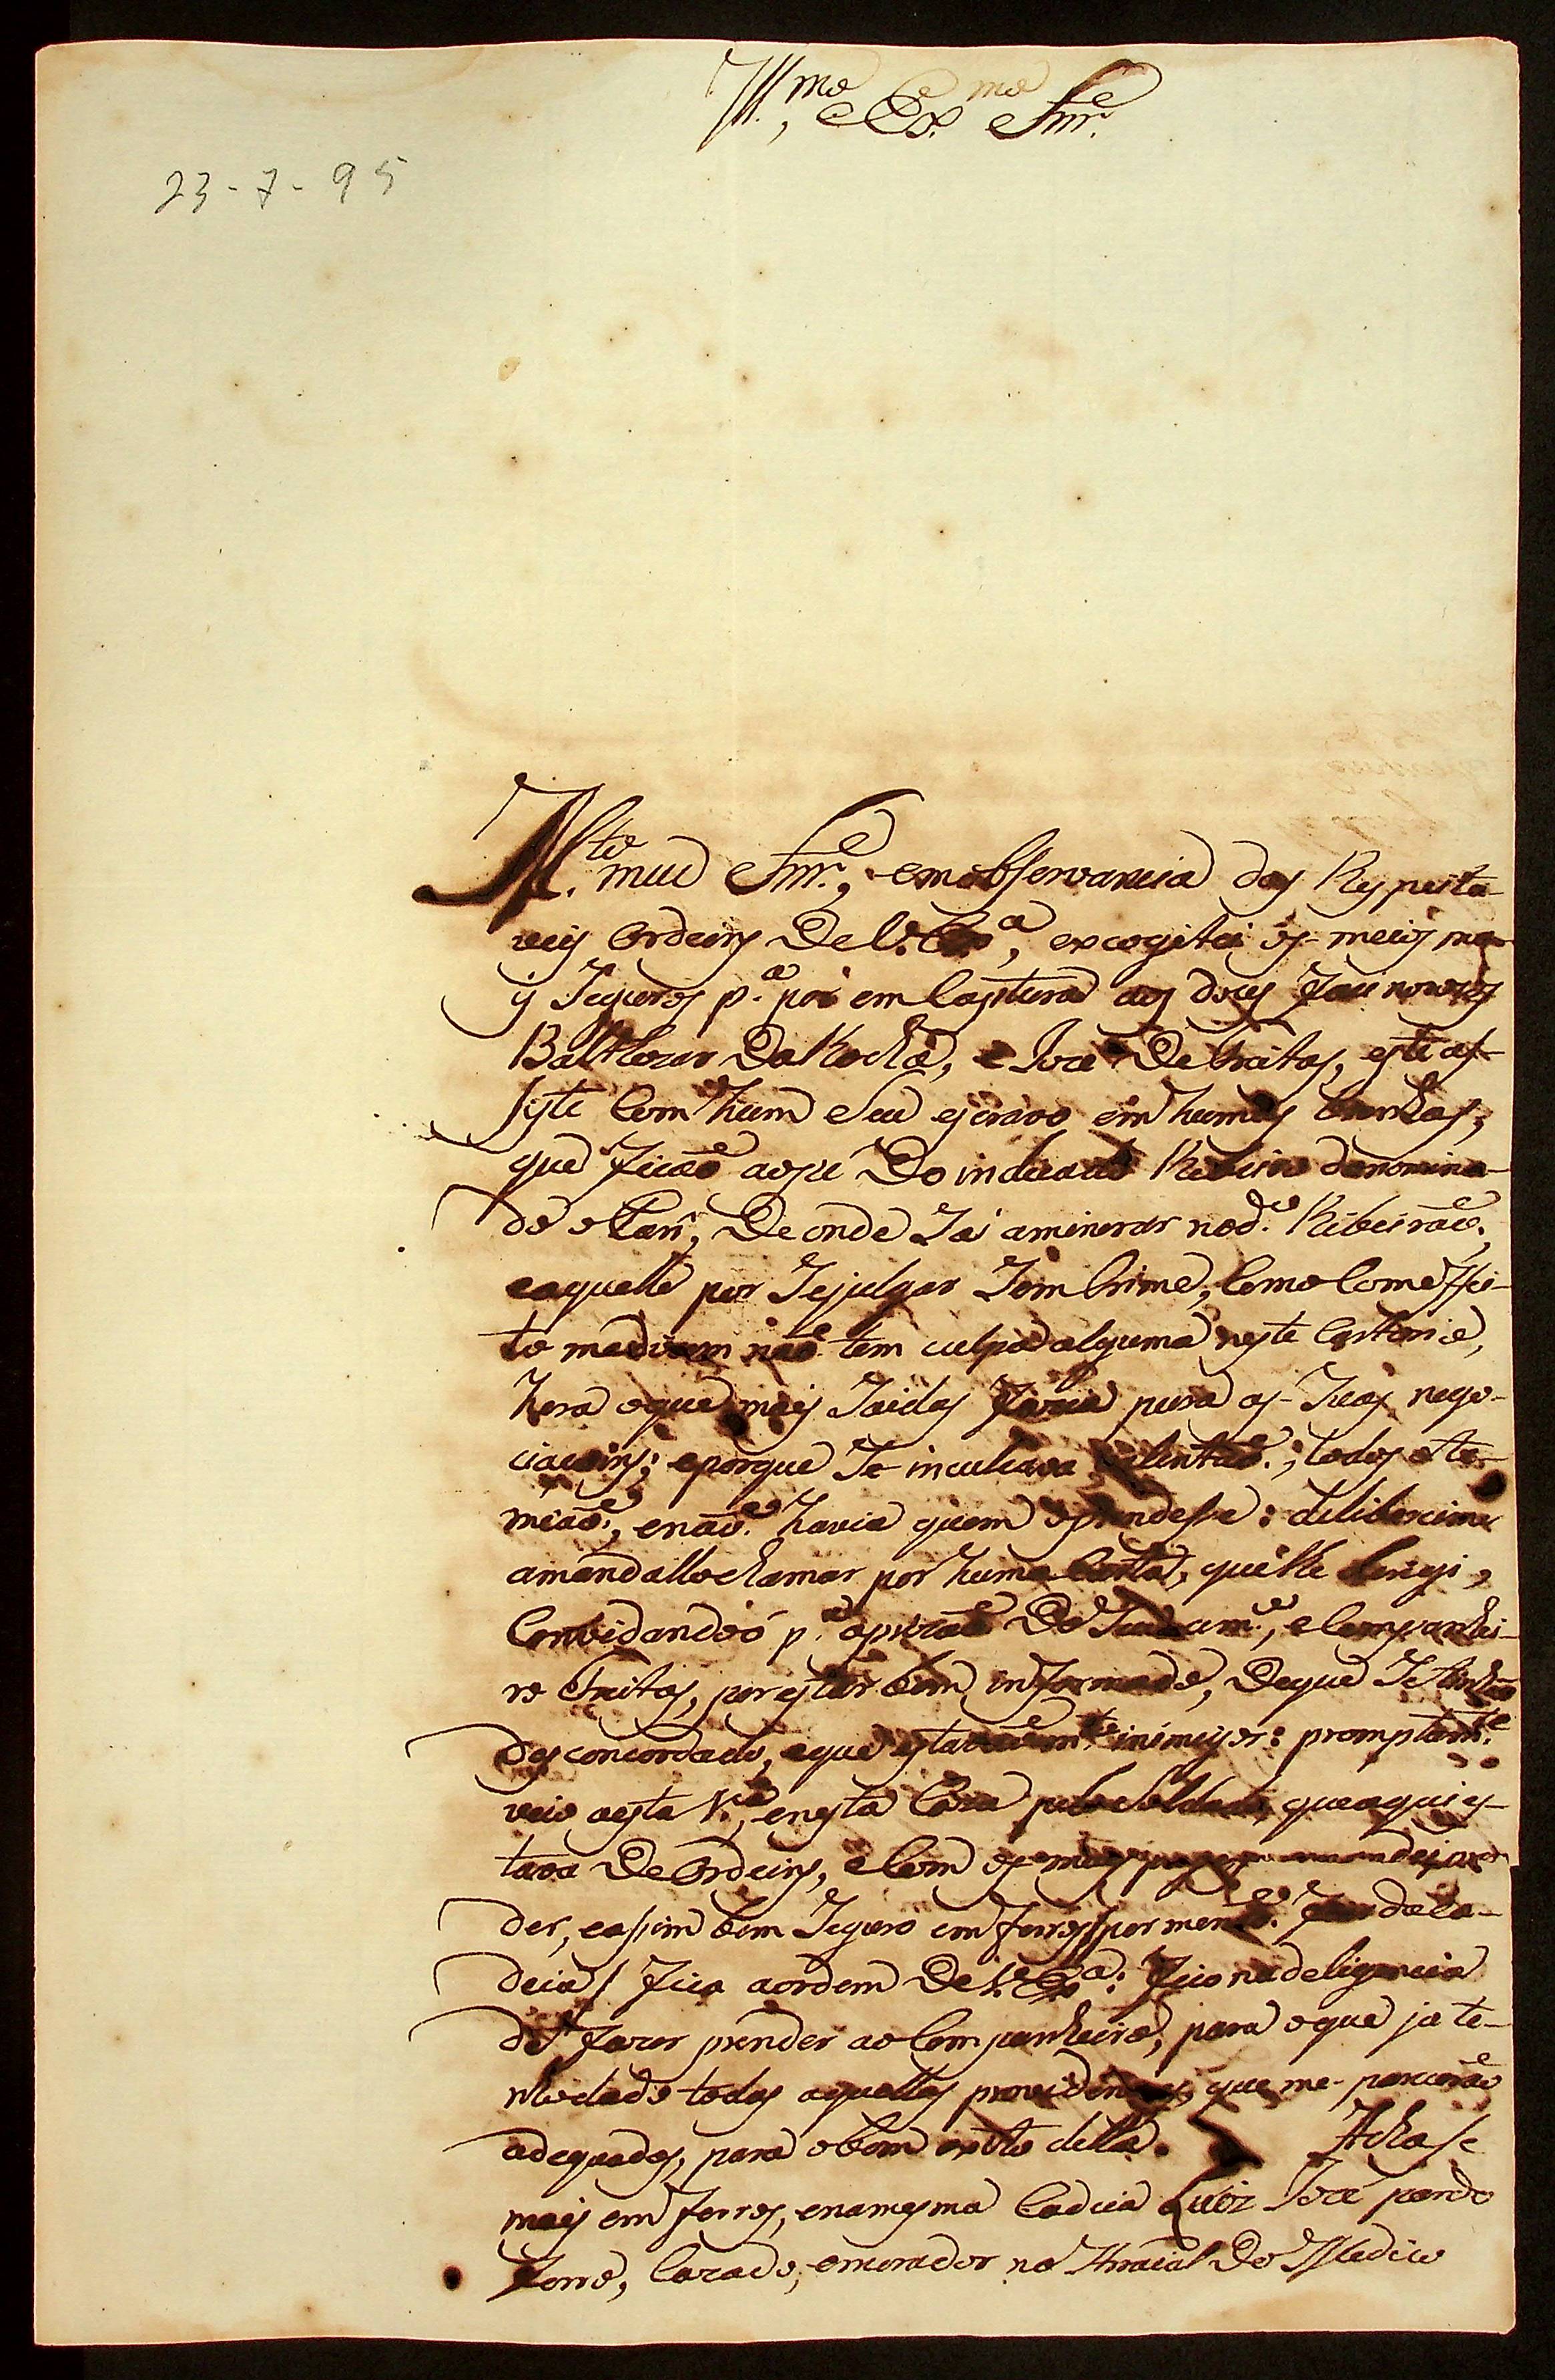 Ill.mo e Ex.mo Snr.
23-7-95
M.to meu Snr., em observancia das Respeita-
veis Ordeins De V. Ex.a, excogitei os meios ma-
is Seguros p.a por em Captura aos dous facinorozos
Balthezar Da Rocha, e Joze De Freitas, este as-
siste Com hum Seu escravo em humas
que ficão aopé Do indicado Ribeiro denomina-
do o De onde Sai aminerar no d.o Ribeirão,
eaquelle por Sejulgar Sem Crime, Como Comeffei-
to não tem culpa alguma neste Cartorio,
hera oque mais Saidas fazia para as Suas nego-
ciacoins; eporque Se inculcava valentão; todos o te-
mião, enão havia quem oprendesse: delibereime
amandallo chamar por huma Carta, quelhe derigi,
Convidandoó p.a aprizão Do e Companhei-
ro Freitas, porestar bem informado, Deque Setinhão
desconcordado, eque inimigos: promptam.te
veio aesta V.a, enesta Caza pelo Soldado, queaqui es-
tava De Ordeins, eCom os mandei pren-
der, easim bem Seguro em ferros/por da Ca-
deia/ fica aordem De V. Ex.a: fico nadeligencia
de fazer prender ao Companheiro, para oque ja te-
nhodado todas aquellas providencias, que me-parcerão
adequadas, para obom exito della. Achase
mais em ferros, enamesma Cadeia Luiz Joze pardo
forro, Cazado, emorador no Arraial Do